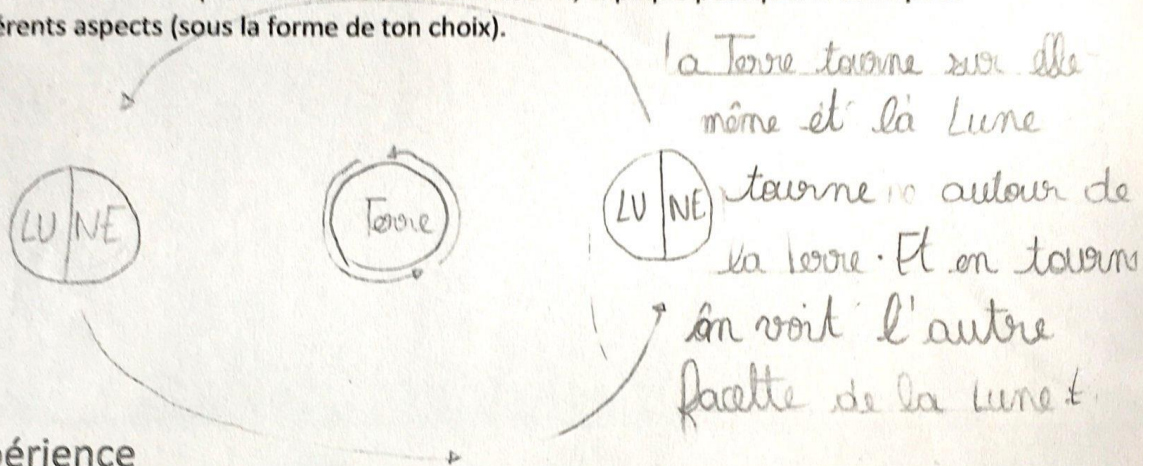 érents aspects (sous la forme de ton choix).
la Terre tourne sur elle
même et la Lune
LU NE
Terre
LU NE
tourne autour de
la terre. Et en tourn
on voit l'autre
facette de la Lune t.
périence